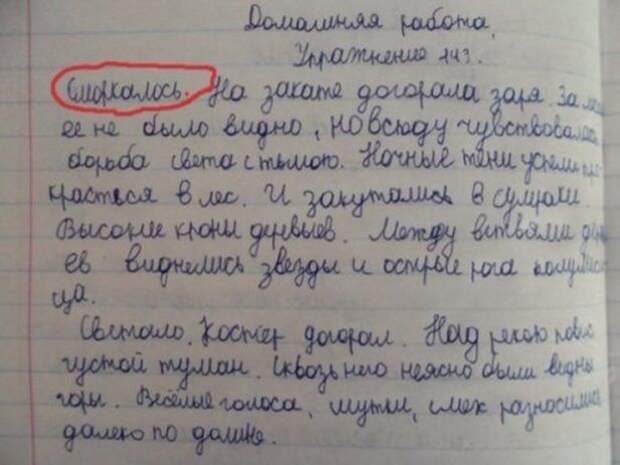 Домашняя работа,
Упражнение 143.
Сморкалось. На закате догорала заря. За
ее не было видно, но всюду чувствовалась
борьба света с тьмою. Ночные тени успели про
красться в лес. И закутались в сумраки
Высокие кроны деревьев. Между ветвями дере
ев виднелись звезды и острые рога полумеся
ца.
Светало. Костёр догорал. Над рекою повис
густой туман. Сквозь него неясно были видны
горы. Весёлые голоса, шутки, смех разносились
далеко по долине.